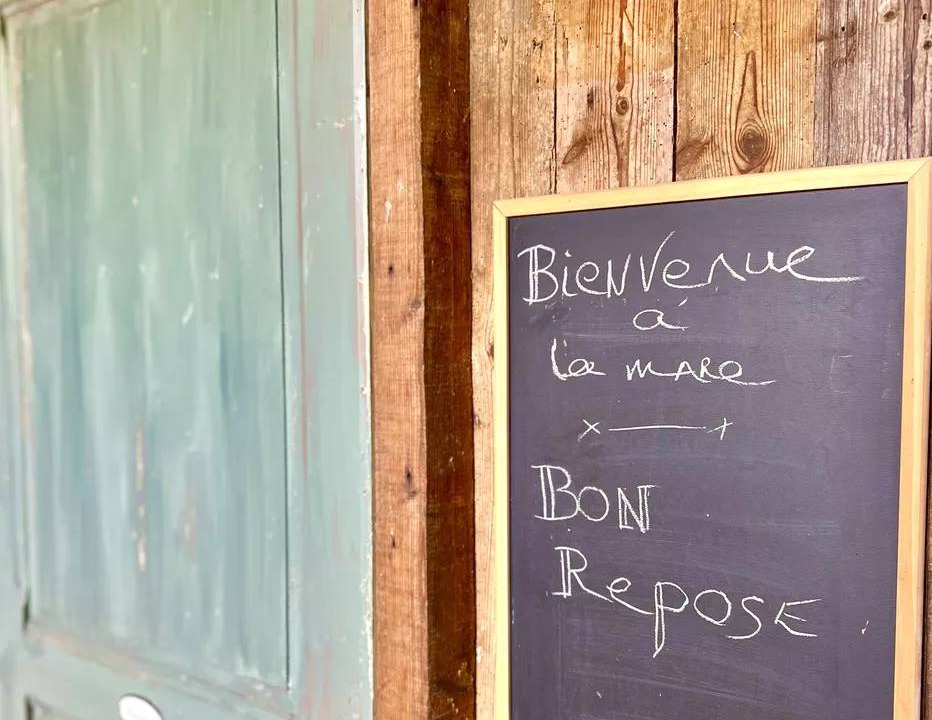 Bienvenue
à
la mare
x—x
Bon
Repose